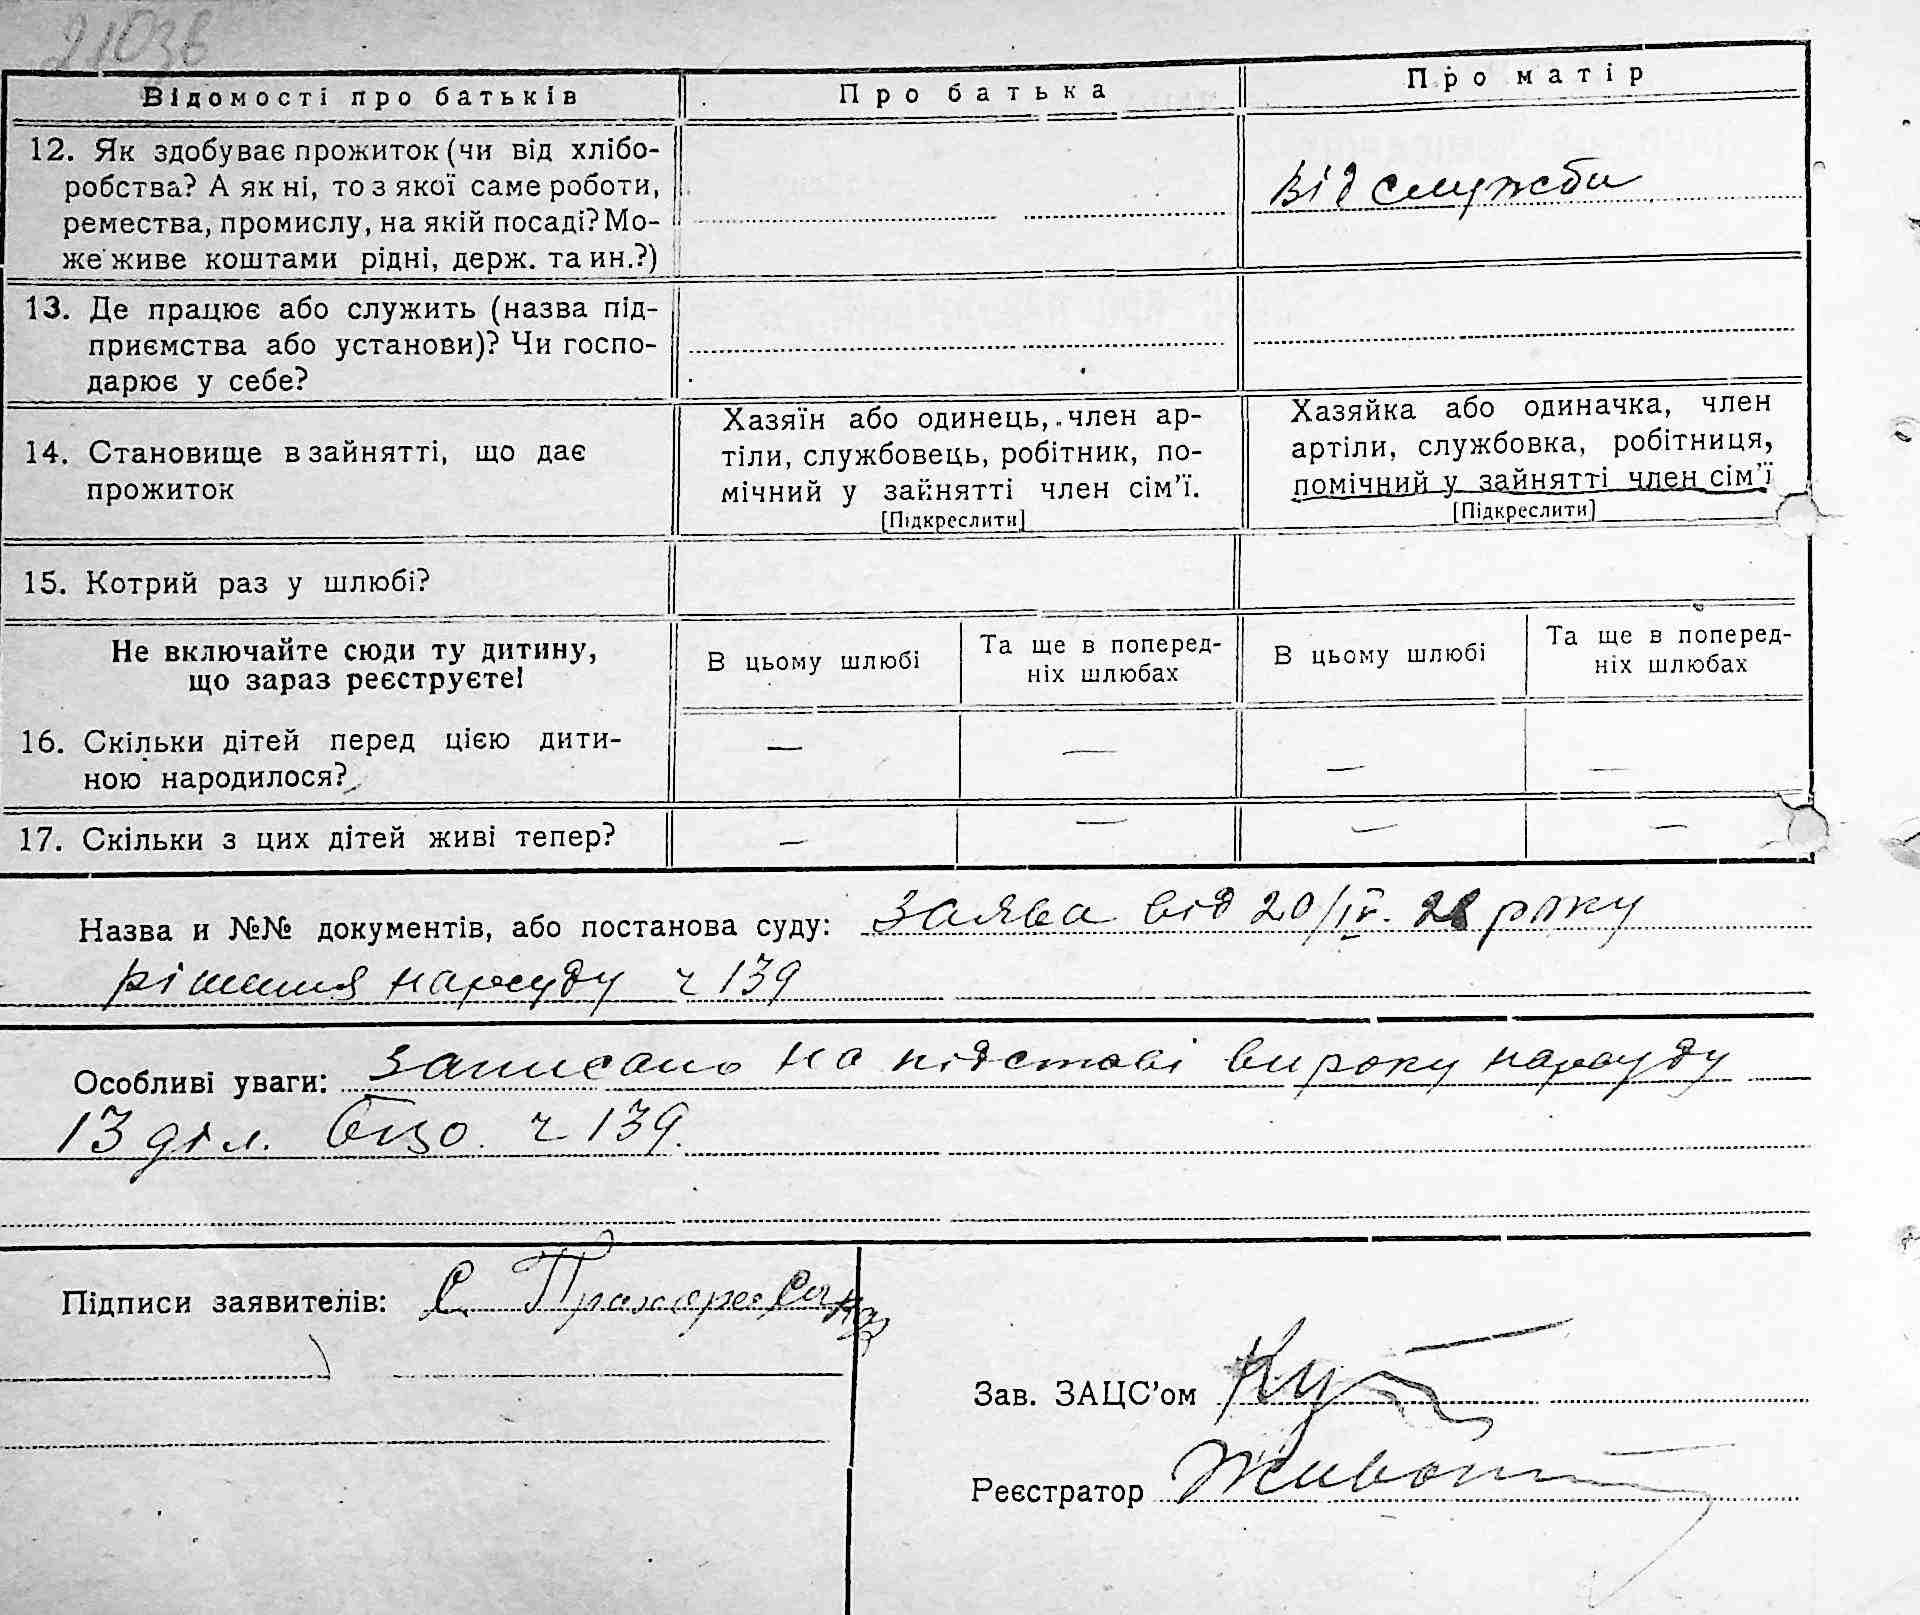 Відомості про батьків
Про батька
Про матір
12. Як здобуває прожиток (чи від хлібо-
робства? А як ні, то з якої саме роботи,
ремества, промислу, на якій посаді? Мо-
же живе коштами рідні, держ. та ин.?)
від служби
13. Де працює або служить (назва під-
приємства або установи)? Чи госпо-
дарює у себе?
14. Становище в зайнятті, що дає
прожиток
Хазяїн або одинець, член ар-
тіли, службовець, робітник, по-
мічний у зайнятті член сім'ї.
[Підкреслити]
Хазяйка або одиначка, член
артіли, службовка, робітниця,
помічний у зайнятті член сім'ї
[Підкреслити]
15. Котрий раз у шлюбі?
Не включайте сюди ту дитину,
що зараз реєструєте!
В цьому шлюбі
Та ще в поперед-
ніх шлюбах
В цьому шлюбі
Та ще в поперед-
ніх шлюбах
16. Скільки дітей перед цією дити-
ною народилося?
— — — —
17. Скільки з цих дітей живі тепер?
— — — —
Назва и №№ документів, або постанова суду: заява від 20/IV. 28 року
рішення нарсуду ч 139
Особливі уваги: Записано на підставі вироку нарсуду
13 діл. ч. 139.
Підписи заявителів: С.
Зав. ЗАЦС'ом
Реєстратор